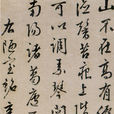 山不在高有
馨苔痕上階
可以調素琴
南陽諸葛廬
右陋室銘